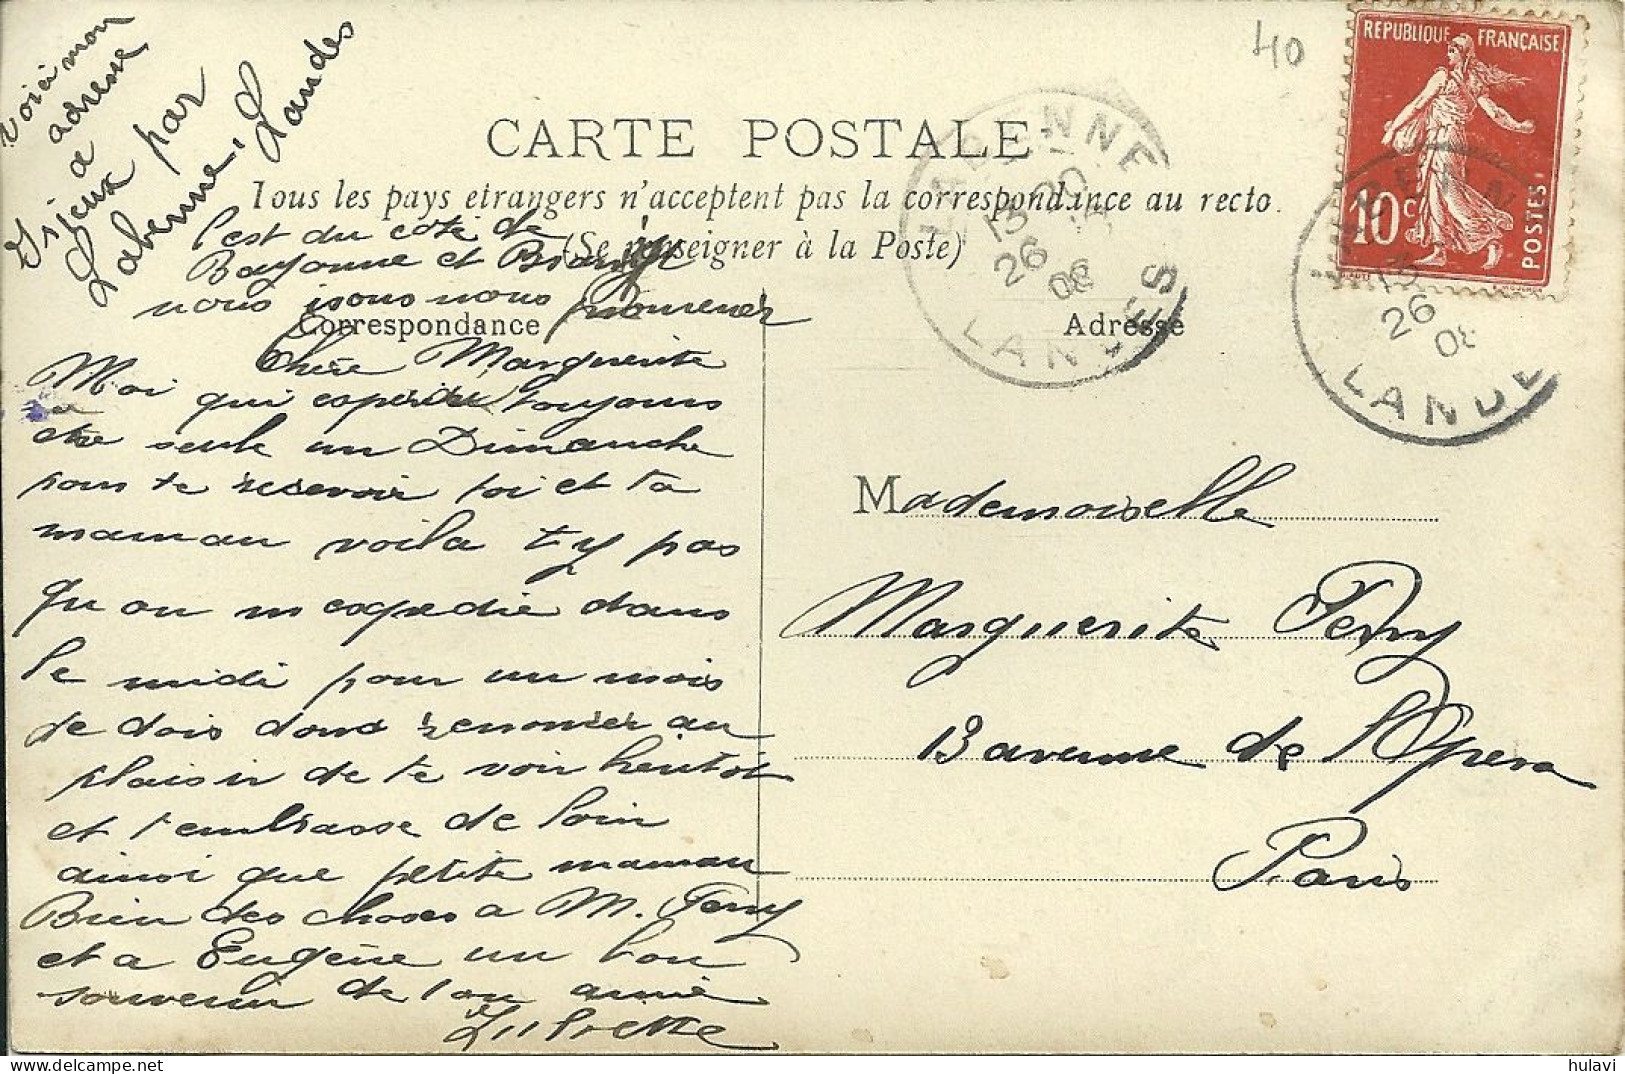 voici mon
adresse
a
par
Labenne, Landes
40
REPUBLIQUE FRANÇAISE
10 c
POSTES
CARTE POSTALE
Tous les pays etrangers n'acceptent pas la correspondance au recto.
(Se renseigner à la Poste)
LABENNE
13 20
26
08
LANDES
13
26
08
LANDES
c'est du coté de
Bayonne et
nous irons nous promener
Correspondance
Adresse
Chère Marguerite
Moi qui toujours
etre seule un Dimanche
pour te recevoir toi et ta
maman voila t'y pas
qu on m expedie dans
le midi pour un mois
je dois donc renoncer au
plaisir de te voir bientot
et t'embrasse de loin
ainsi que petite maman
Bien des choses a M.
et a Eugène un bon
souvenir de ton amie
Mademoiselle
Marguerite
13 avenue de l'Opera
Paris
hulavi